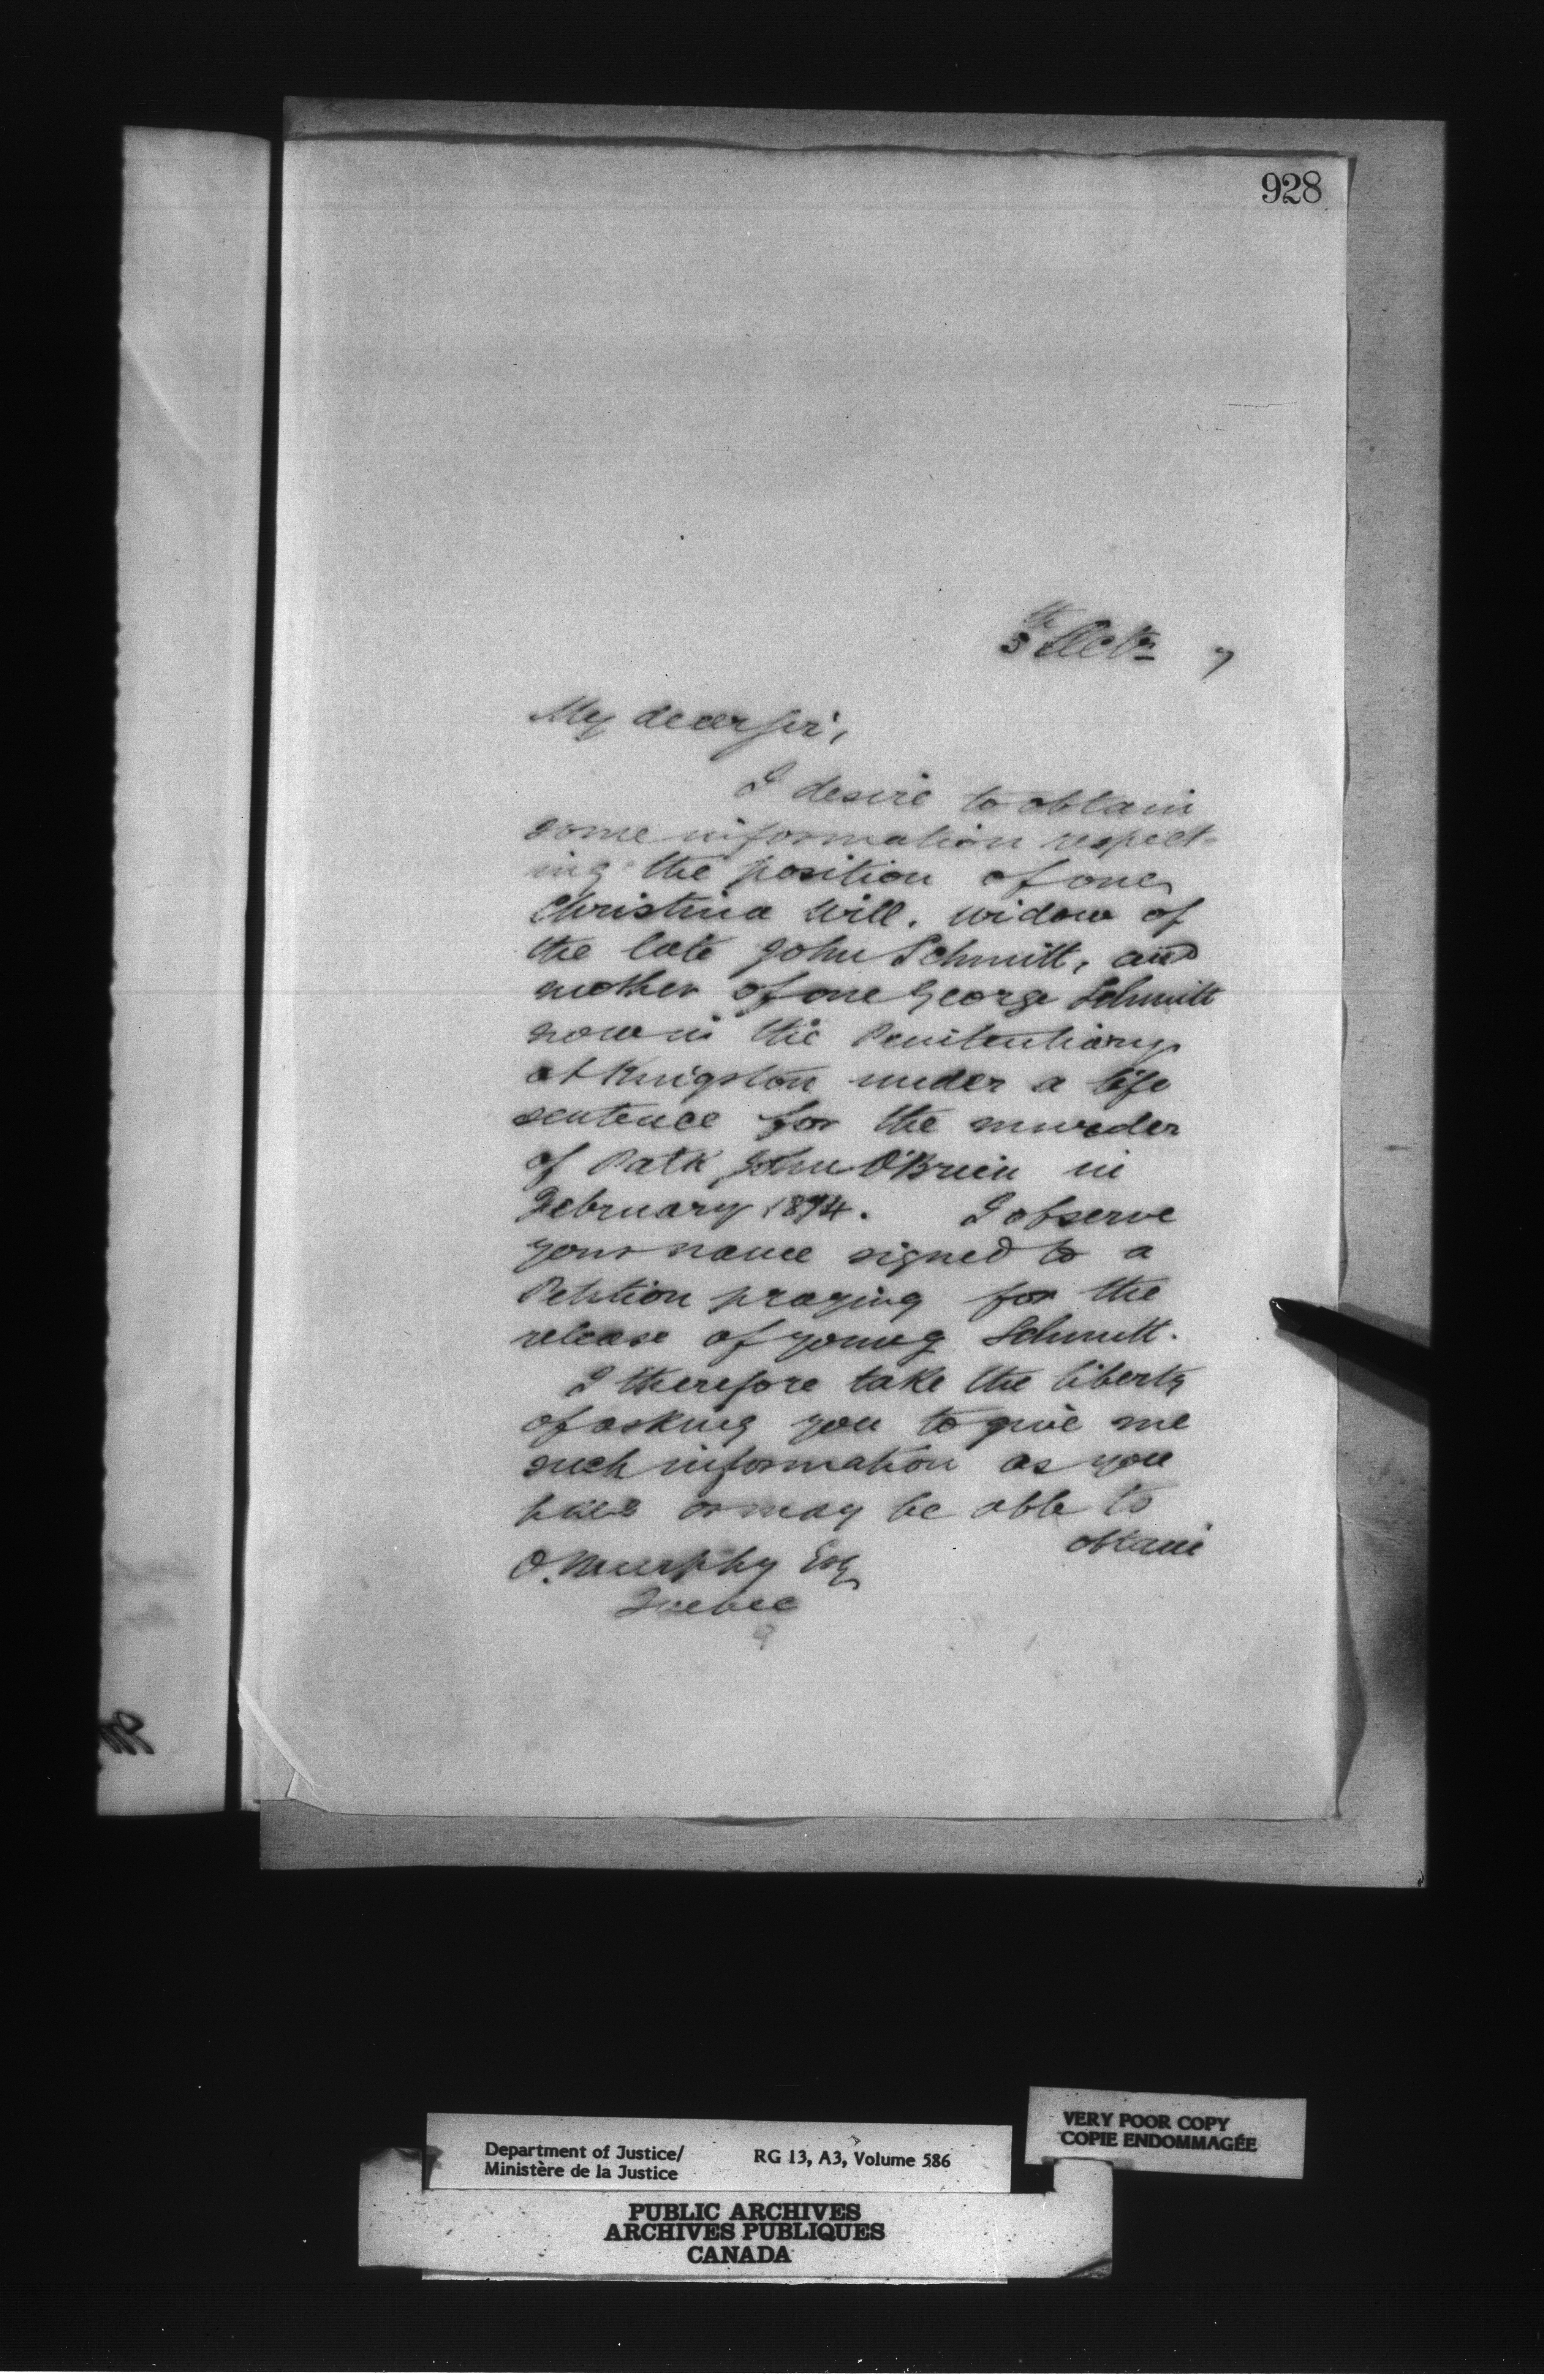 928
5th Octr 7
My dear Sir,
I desire to obtain
some information respect-
ing the position of one
Christina Will. widow of
the late John Schmitt, and
mother of one George Schmitt
now in the Penitentiary
at Kingston under a life
sentence for the murder
of Patk John O'Brien in
February 1874. I observe
your name signed to a
Petition praying for the
release of young Schmitt.
I therefore take the liberty
of asking you to give me
such information as you
have or may be able to
obtain
O. Murphy Esq
Quebec
Department of Justice/
Ministère de la Justice
RG 13, A3, Volume 586
VERY POOR COPY
COPIE ENDOMMAGÉE
PUBLIC ARCHIVES
ARCHIVES PUBLIQUES
CANADA